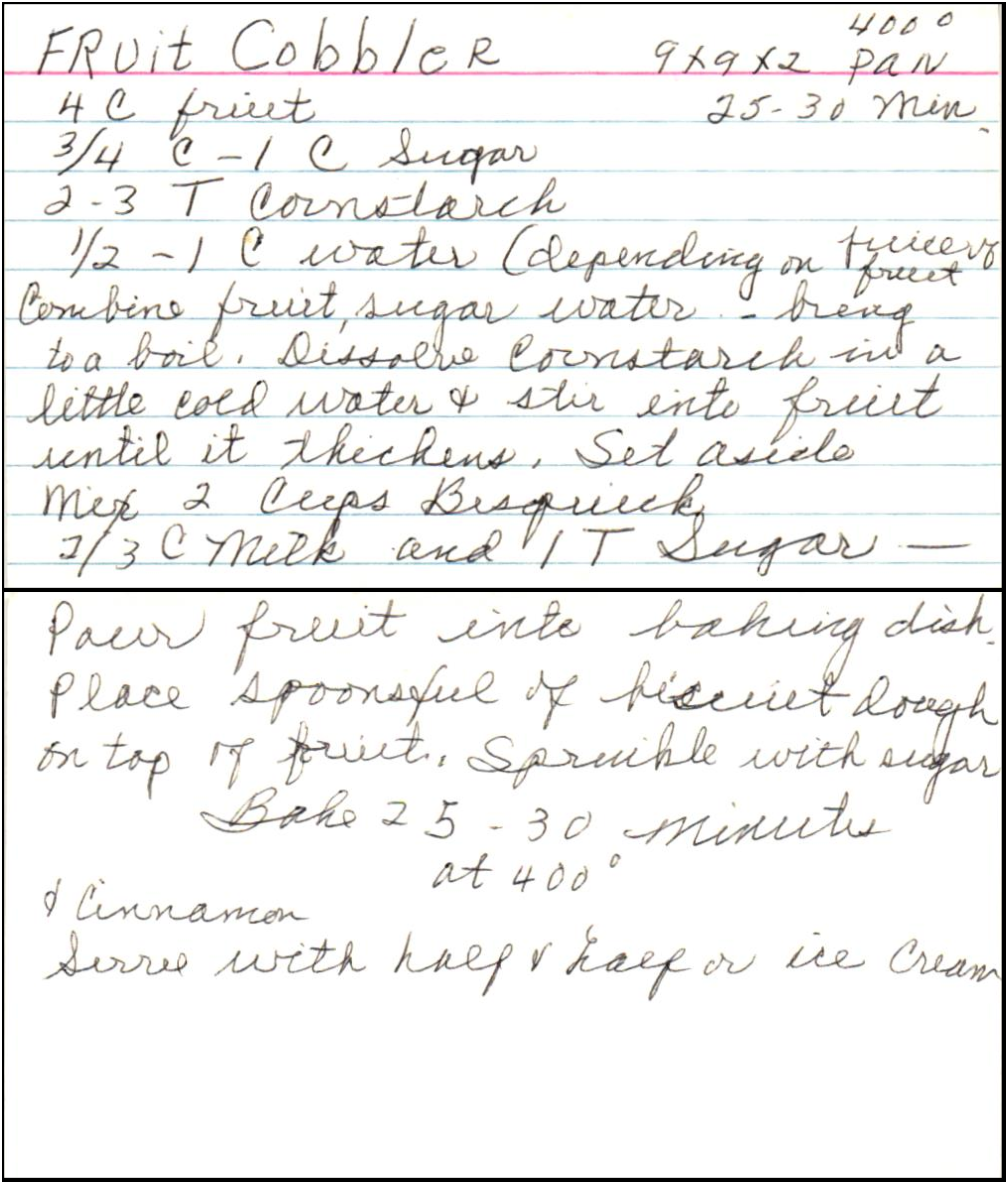 FRUit CobbleR
400°
9x9x2 PAN
4 C fruit
25-30 Min.
3/4 C - 1 C Sugar
2-3 T Cornstarch
1/2 - 1 C water (depending on juice of fruit
Combine fruit, sugar water - bring
to a boil. Dissolve Cornstarch in a
little cold water & stir into fruit
until it thickens. Set aside
Mix 2 Cups Bisquick
2/3 C Milk and 1 T Sugar —
Pour fruit into baking dish.
Place spoonsful of biscuit dough
on top of fruit. Sprinkle with sugar
Bake 25-30 minutes
at 400°
& Cinnamon
Serve with half & half or ice cream